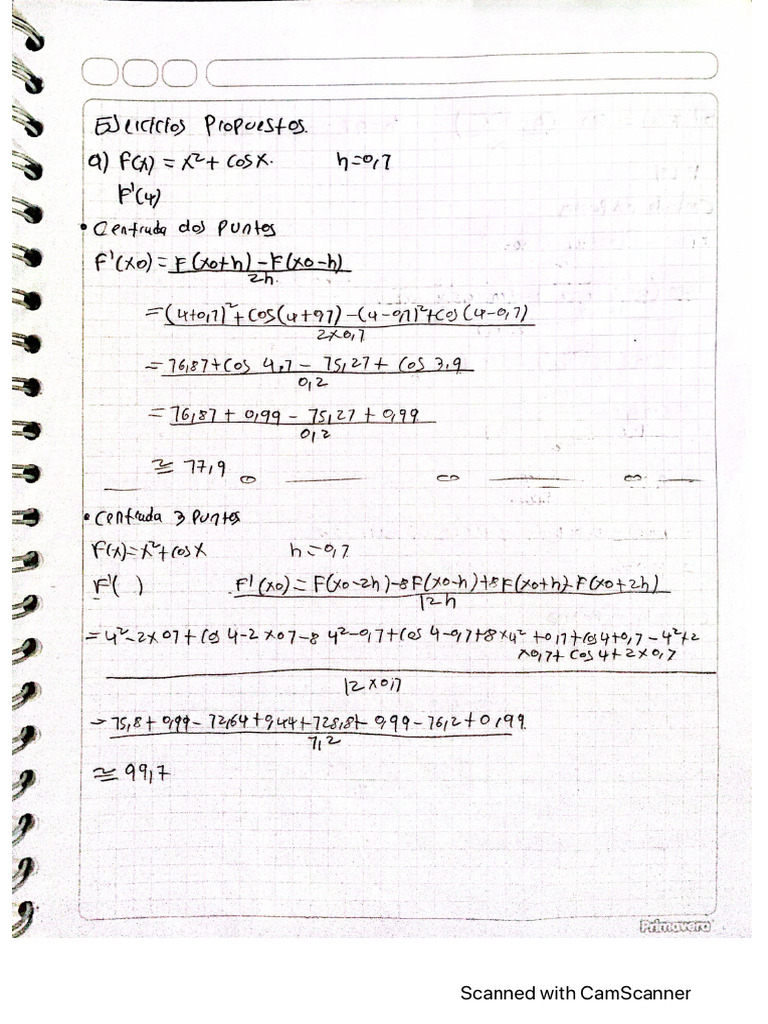 Ejercicios Propuestos.
a) F(x) = x² + cos x. h=0,1
F'(4)
• Centrada dos Puntos
F'(x0) = F(x0+h) - F(x0-h) / 2h.
= (4+0,1)² + cos(4+0,1) - (4-0,1)² + cos(4-0,1) / 2x0,1
= 16,81 + cos 4,1 - 15,21 + cos 3,9 / 0,2
= 16,81 + 0,99 - 15,21 + 0,99 / 0,2
≅ 17,9
• Centrada 3 Puntos
F(x)=x²+cos x h=0,1
F'( ) F'(x0) = F(x0-2h) - 8F(x0-h) + 8F(x0+h) - F(x0+2h) / 12h
= 4² - 2x01 + cos 4-2x01 - 8 4² - 0,1 + cos 4-0,1 + 8x4² + 0,1 + cos 4+0,1 - 4² + 2
x0,1 + cos 4 + 2x0,1
12x0,1
→ 15,8 + 0,99 - 12,64 + 9,44 + 128,8 + 0,99 - 16,2 + 0,99 / 1,2
≅ 99,1
Primavera
Scanned with CamScanner